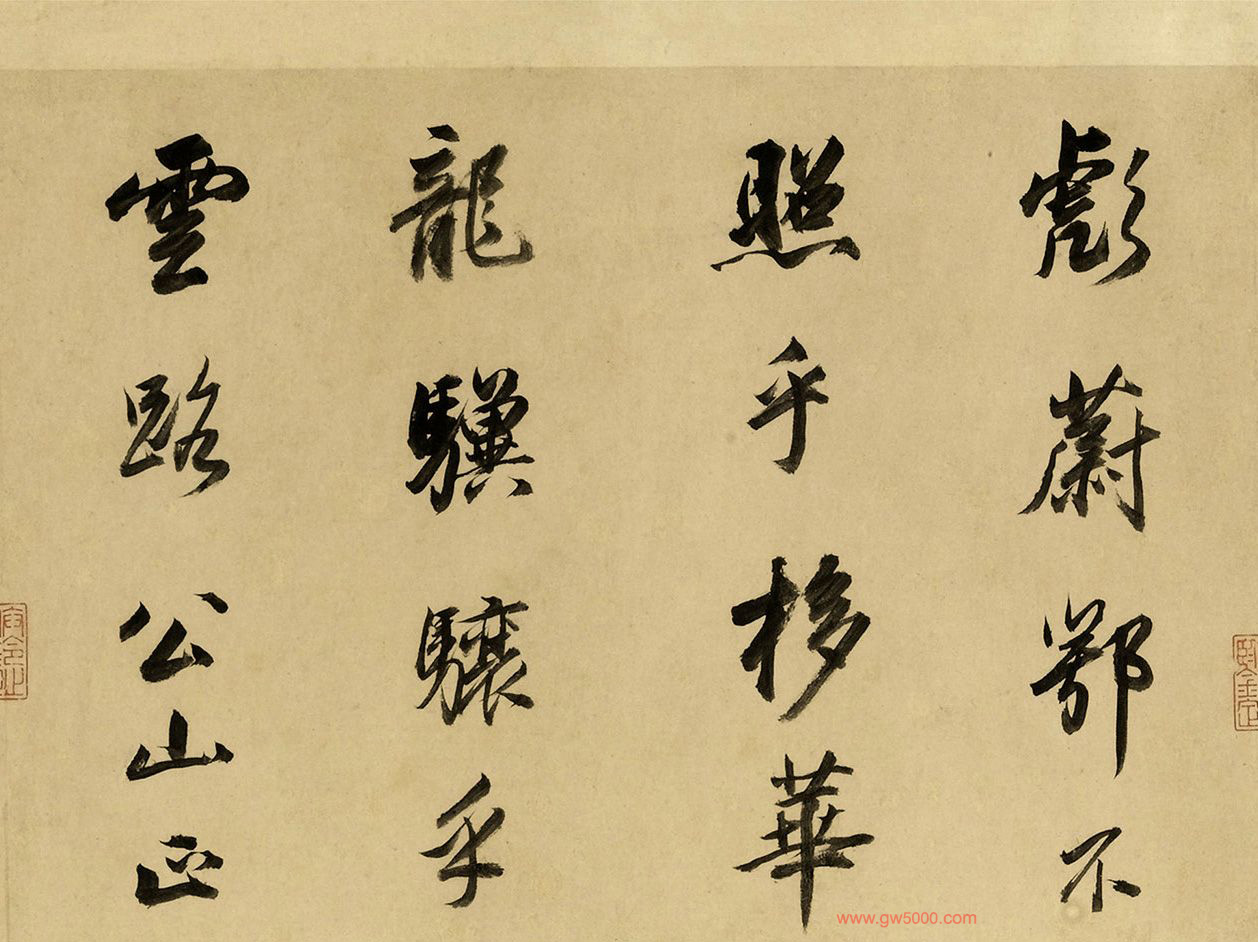 彪蔚鄂不
照乎栘華
龍驥驤乎
雲路公山正
www.gw5000.com